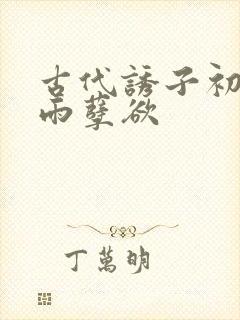 古代誘子初
雨孽欲
丁萬明